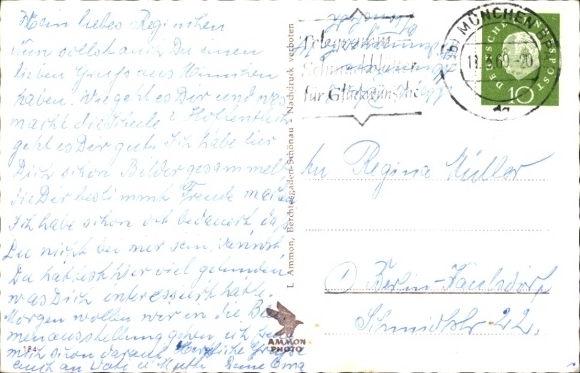 Mein liebes Reginchen
Nun sollst auch Du einen
lieben Gruß aus München
haben. Wie geht es Dir und was
macht die Schule? Hoffentlich
geht es Dir gut. Ich habe hier
Dir schon Bilder gesammelt
die Dir bestimmt Freude machen
Ich habe schon oft bedauert, daß
Du nicht bei mir sein kannst
Du hättest hier viel gefunden
was Dich interessiert hätte.
Morgen wollen wir in die
ausstellung gehen ich freue
mich schon darauf. Herzliche Grüße
auch an Vati u. Mutti Deine Oma
184
L. Ammon, Berchtesgaden-Schönau · Nachdruck verboten
AMMON
PHOTO
Telegramm
Schmuckblätter
für Glückwünsche
MÜNCHEN
11.3.60-20
DEUTSCHE BUNDESPOST
10
An Regina Müller
Berlin-Kaulsdorf
Schmidtstr 22.